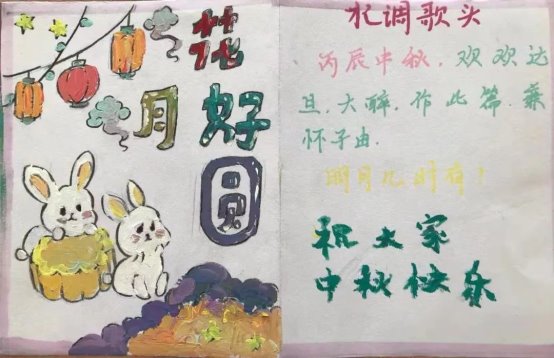 花
好月
圆
水调歌头
丙辰中秋，欢欢达
旦，大醉，作此篇，兼
怀子由.
明月几时有！
祝大家
中秋快乐